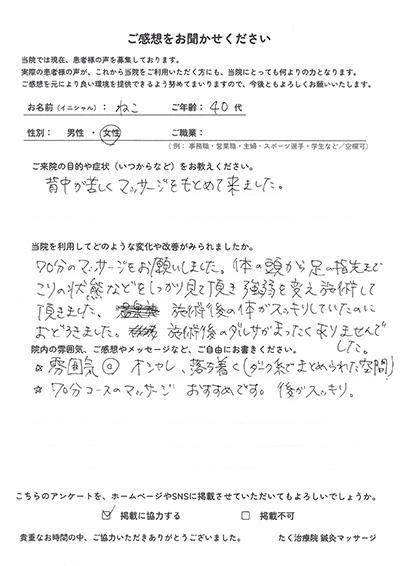 ご感想をお聞かせください
当院では現在、患者様の声を募集しております。
実際の患者様の声が、これから当院をご利用いただく方にも、当院にとっても何よりの力となります。
ご感想を元により良い環境を提供できるよう努めてまいりますので、今後ともよろしくお願いいたします。
お名前（イニシャル）： ねこ ご年齢： 40 代
性別： 男性 ・ 女性 ご職業：
（例： 事務職・営業職・主婦・スポーツ選手・学生など／空欄可）
ご来院の目的や症状（いつからなど）をお教えください。
背中が苦しくマッサージをもとめて来ました。
当院を利用してどのような変化や改善がみられましたか。
70分のマッサージをお願いしました。体の頭から足の指先まで
こりの状態などをしっかり見て頂き 強弱を変え施術して
頂きました。 施術後の体がスッキリしていたのに
おどろきました。 施術後のダルサがまったくありませんで
した。
院内の雰囲気、ご感想やメッセージなど、ご自由にお書きください。
☆ 雰囲気◎ オシャレ、落ち着く(ダーク系でまとめられた空間)
☆ 70分コースのマッサージ おすすめです。後がスッキリ。
こちらのアンケートを、ホームページやSNSに掲載させていただいてもよろしいでしょうか。
☑ 掲載に協力する □ 掲載不可
貴重なお時間の中、ご協力いただきありがとうございました。 たく治療院 鍼灸マッサージ